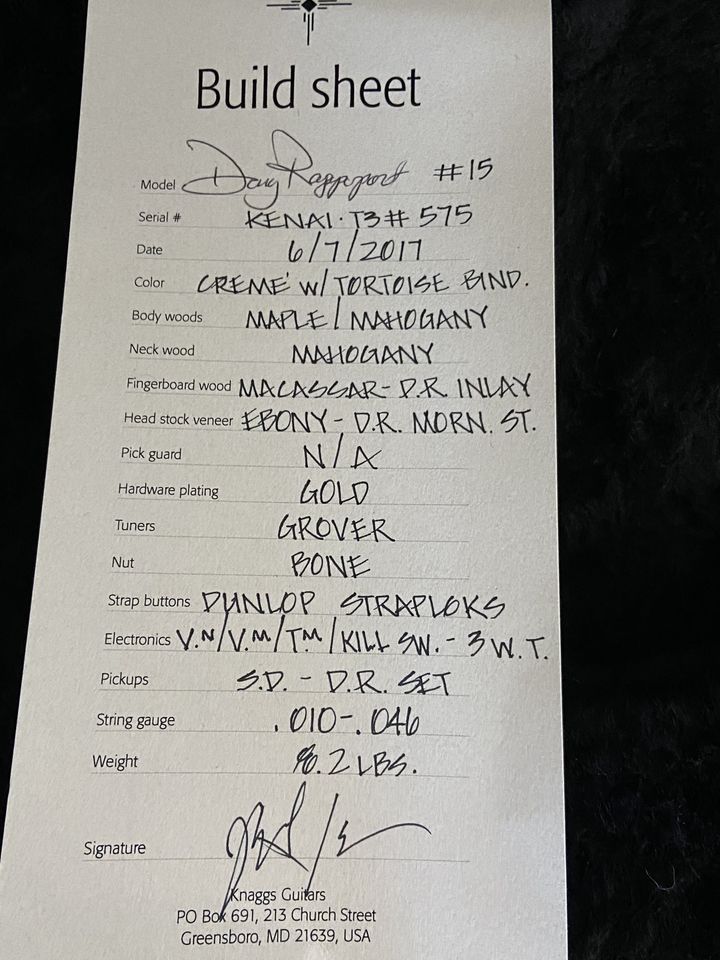 Build sheet
Model Doug Rappoport #15
Serial # KENAI·T3# 575
Date 6/7/2017
Color CREMÉ W/ TORTOISE BIND.
Body woods MAPLE / MAHOGANY
Neck wood MAHOGANY
Fingerboard wood MACASSAR - D.R. INLAY
Head stock veneer EBONY - D.R. MORN. ST.
Pick guard N/A
Hardware plating GOLD
Tuners GROVER
Nut BONE
Strap buttons DUNLOP STRAPLOKS
Electronics V.N/V.M/T.M/KILL SW. - 3 W.T.
Pickups S.D. - D.R. SET
String gauge .010-.046
Weight 8.2 LBS.
Signature
Knaggs Guitars
PO Box 691, 213 Church Street
Greensboro, MD 21639, USA